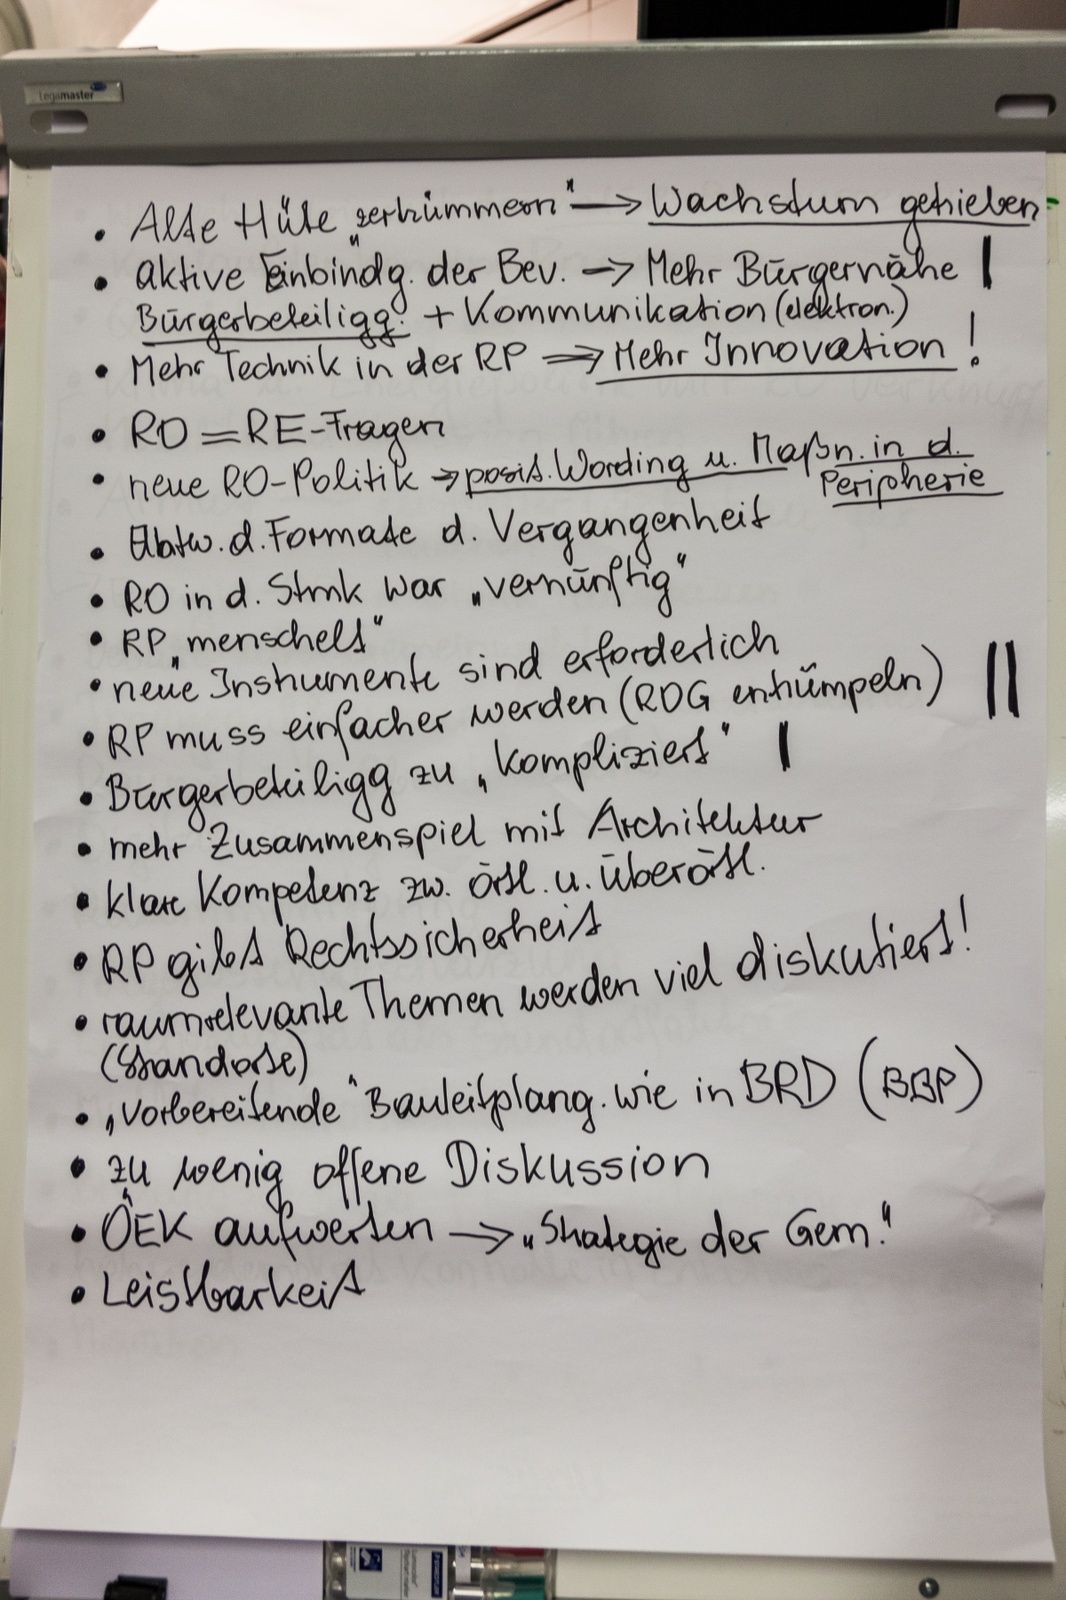 Legamaster
• Alte Hüte „zertrümmern" → Wachstum getrieben
• aktive Einbindg. der Bev. → Mehr Bürgernähe |
Bürgerbeteiligg. + Kommunikation (elektron.)
• Mehr Technik in der RP ⇒ Mehr Innovation !
• RO = RE-Fragen
• neue RO-Politik → posit. Wording u. Maßn. in d.
Peripherie
• d. Formate d. Vergangenheit
• RO in d. Stmk war „vernünftig"
• RP „menschelt"
• neue Instrumente sind erforderlich
• RP muss einfacher werden (ROG entrümpeln) ||
• Bürgerbeteiligg zu „kompliziert" |
• mehr Zusammenspiel mit Architektur
• klare Kompetenz zw. örtl. u. überörtl.
• RP gibt Rechtssicherheit
• raumrelevante Themen werden viel diskutiert!
(Standorte)
• „vorbereitende" Bauleitplang. wie in BRD (BBP)
• zu wenig offene Diskussion
• ÖEK aufwerten → „Strategie der Gem."
• Leistbarkeit